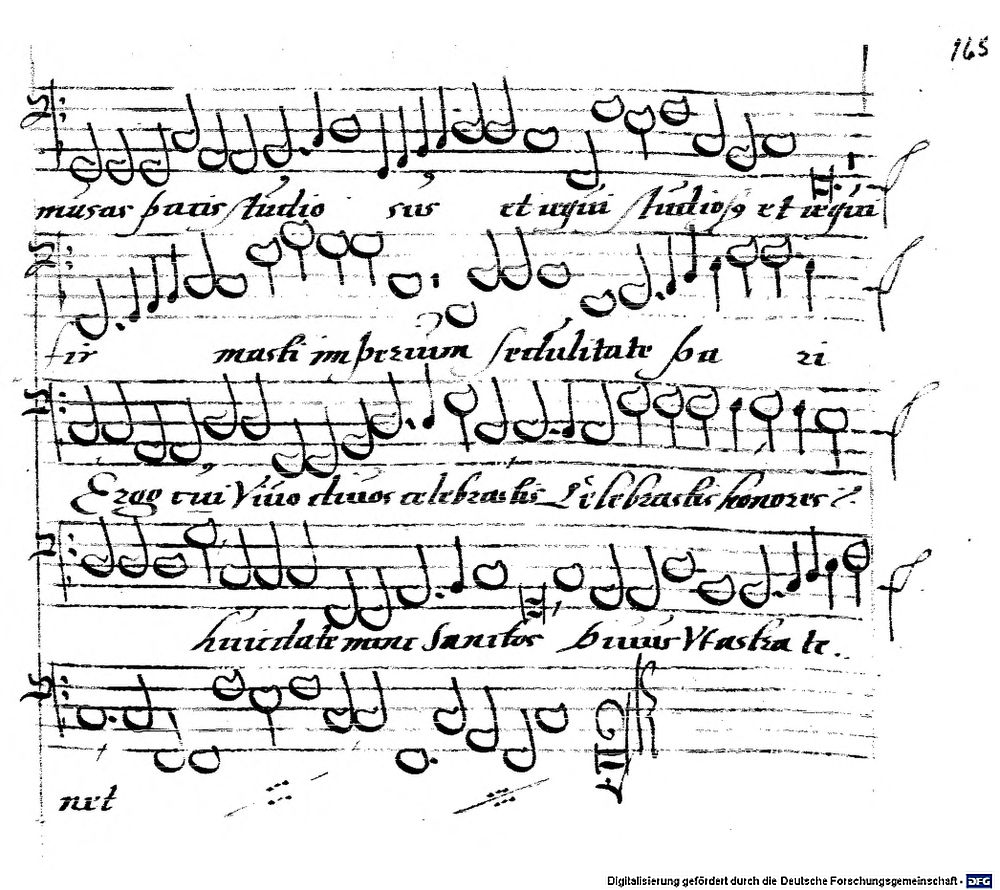 165
musas patis studio sus et uqui studiosꝯ et uqui
fir masti imperium sedulitate pa ri
Ergo cui Viuo diuos celebrastis Celebrastis honores
huic date nunc Sanctos Vt astra te.
net
Digitalisierung gefördert durch die Deutsche Forschungsgemeinschaft - DFG